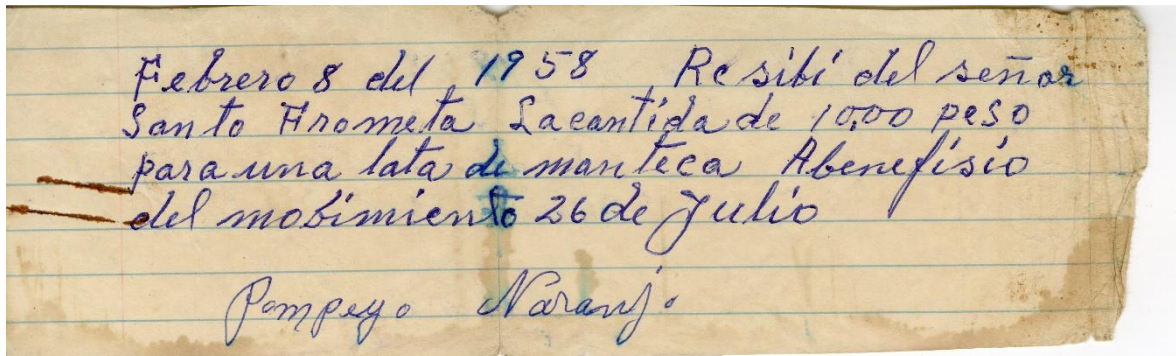 Febrero 8 del 1958 Resibi del señor
Santo Frometa Lacantida de 10,00 peso
para una lata de manteca Abenefisio
del mobimiento 26 de Julio
Pompeyo Naranjo